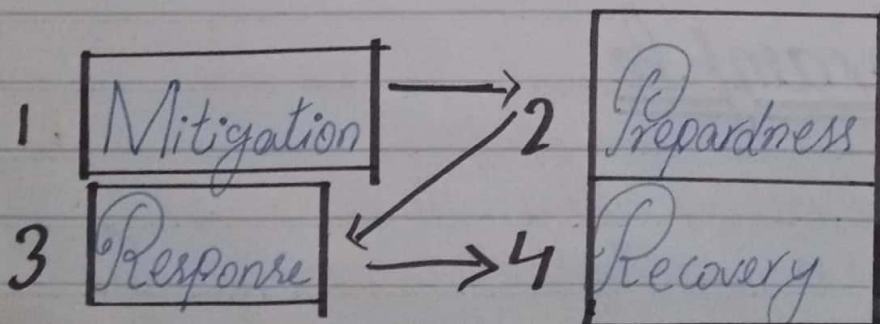 1 Mitigation → 2 Prepardness
3 Response → 4 Recovery